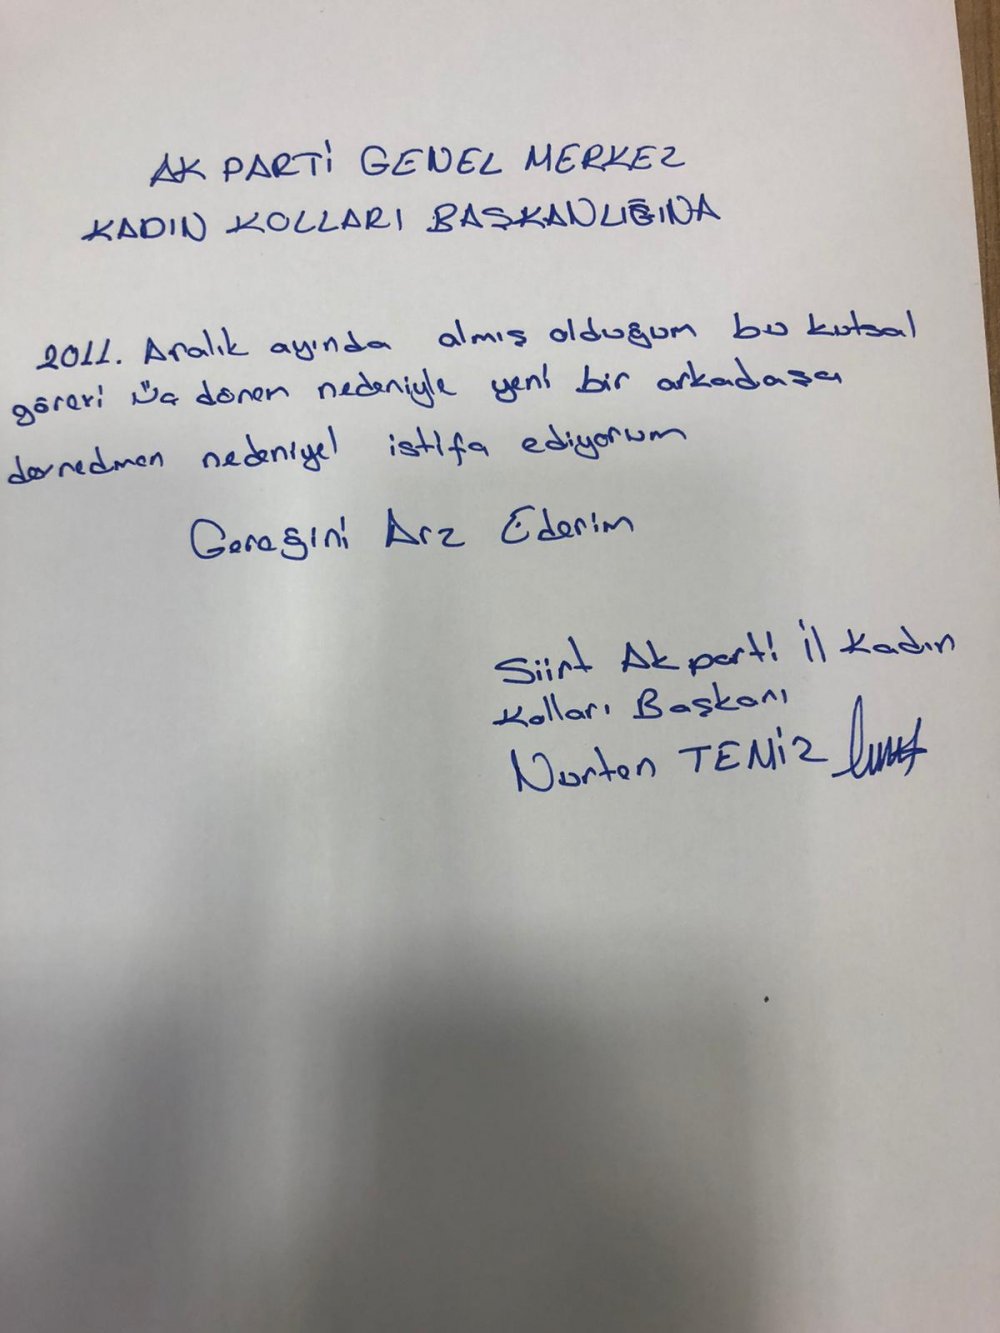 AK PARTİ GENEL MERKEZ
KADIN KOLLARI BAŞKANLIĞINA
2011. Aralık ayında almış olduğum bu kutsal
görevi üç dönem nedeniyle yeni bir arkadaşa
devredmen nedeniyel istifa ediyorum
Gereğini Arz Ederim
Siirt Ak parti il Kadın
Kolları Başkanı
Nurten TEMİZ